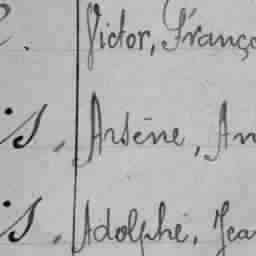 Victor, Franço
is, Arsène, An
is, Adolphe, Jea